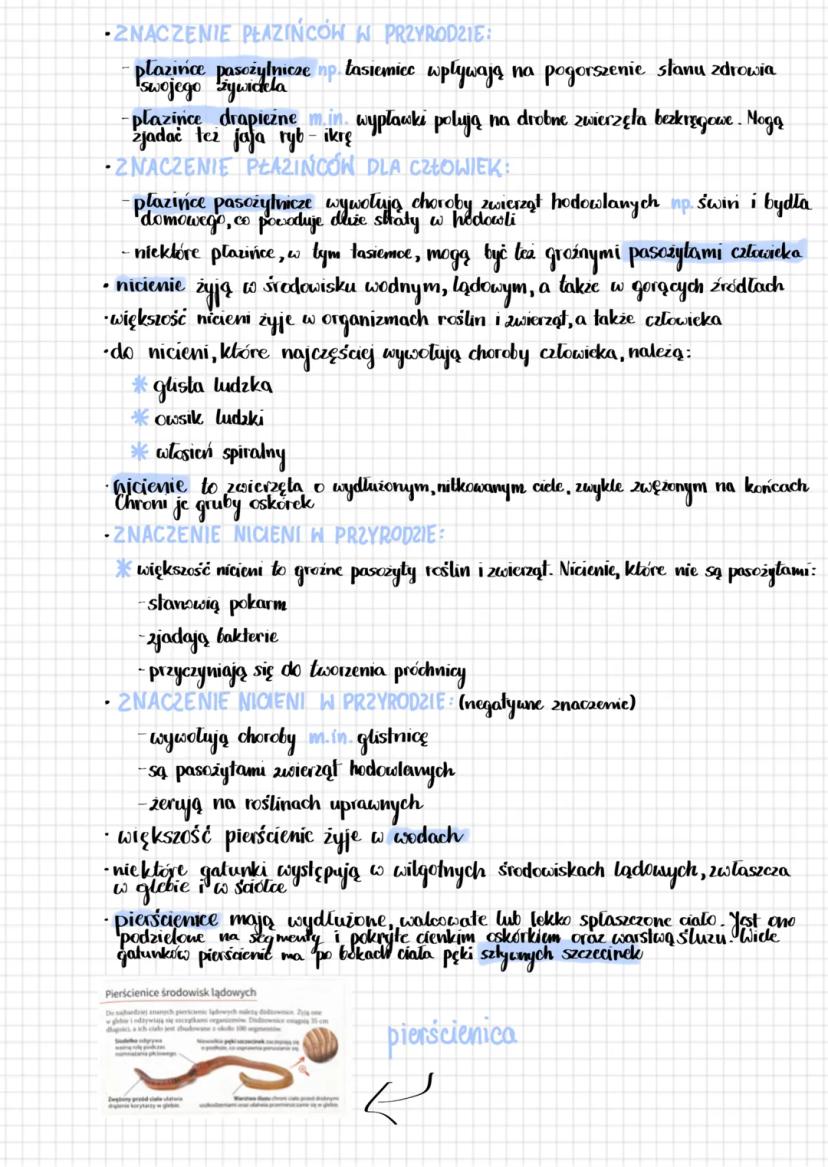 • ZNACZENIE PŁAZIŃCÓW W PRZYRODZIE:
- płazińce pasożytnicze np. tasiemiec wpływają na pogorszenie stanu zdrowia
swojego żywiciela
- płazińce drapieżne m.in. wypławki polują na drobne zwierzęta bezkręgowe. Mogą
zjadać też jaja ryb - ikrę
• ZNACZENIE PŁAZIŃCÓW DLA CZŁOWIEK:
- płazińce pasożytnicze wywołują choroby zwierząt hodowlanych np. świń i bydła
domowego, co powoduje duże straty w hodowli
- niektóre płazińce, w tym tasiemce, mogą być też groźnymi pasożytami człowieka
• nicienie żyją w środowisku wodnym, lądowym, a także w gorących źródłach
• większość nicieni żyje w organizmach roślin i zwierząt, a także człowieka
• do nicieni, które najczęściej wywołują choroby człowieka, należą:
* glista ludzka
* owsik ludzki
* włosień spiralny
• nicienie to zwierzęta o wydłużonym, nitkowanym ciele, zwykle zwężonym na końcach
Chroni je gruby oskórek
• ZNACZENIE NICIENI W PRZYRODZIE:
* większość nicieni to groźne pasożyty roślin i zwierząt. Nicienie, które nie są pasożytami:
- stanowią pokarm
- zjadają bakterie
- przyczyniają się do tworzenia próchnicy
• ZNACZENIE NICIENI W PRZYRODZIE: (negatywne znaczenie)
- wywołują choroby m.in. glistnicę
- są pasożytami zwierząt hodowlanych
- żerują na roślinach uprawnych
• większość pierścienic żyje w wodach
• niektóre gatunki występują w wilgotnych środowiskach lądowych, zwłaszcza
w glebie i w ściółce
• pierścienice mają wydłużone, walcowate lub lekko spłaszczone ciało. Jest ono
podzielone na segmenty i pokryte cienkim oskórkiem oraz warstwą śluzu. Wiele
gatunków pierścienic ma po bokach ciała pęki sztywnych szczecinek
Pierścienice środowisk lądowych
Do najbardziej znanych pierścienic lądowych należą dżdżownice. Żyją one
w glebie i odżywiają się szczątkami organizmów. Dżdżownice osiągają 35 cm
długości, a ich ciało jest zbudowane z około 100 segmentów.
Siodełko odgrywa
ważną rolę podczas
rozmnażania płciowego.
Niewielkie pęki szczecinek zaczepiają się
Zwężony przód ciała ułatwia
drążenie korytarzy w glebie.
Warstwa śluzu chroni ciało przed drobnymi
uszkodzeniami oraz ułatwia przemieszczanie się w glebie.
pierścienica